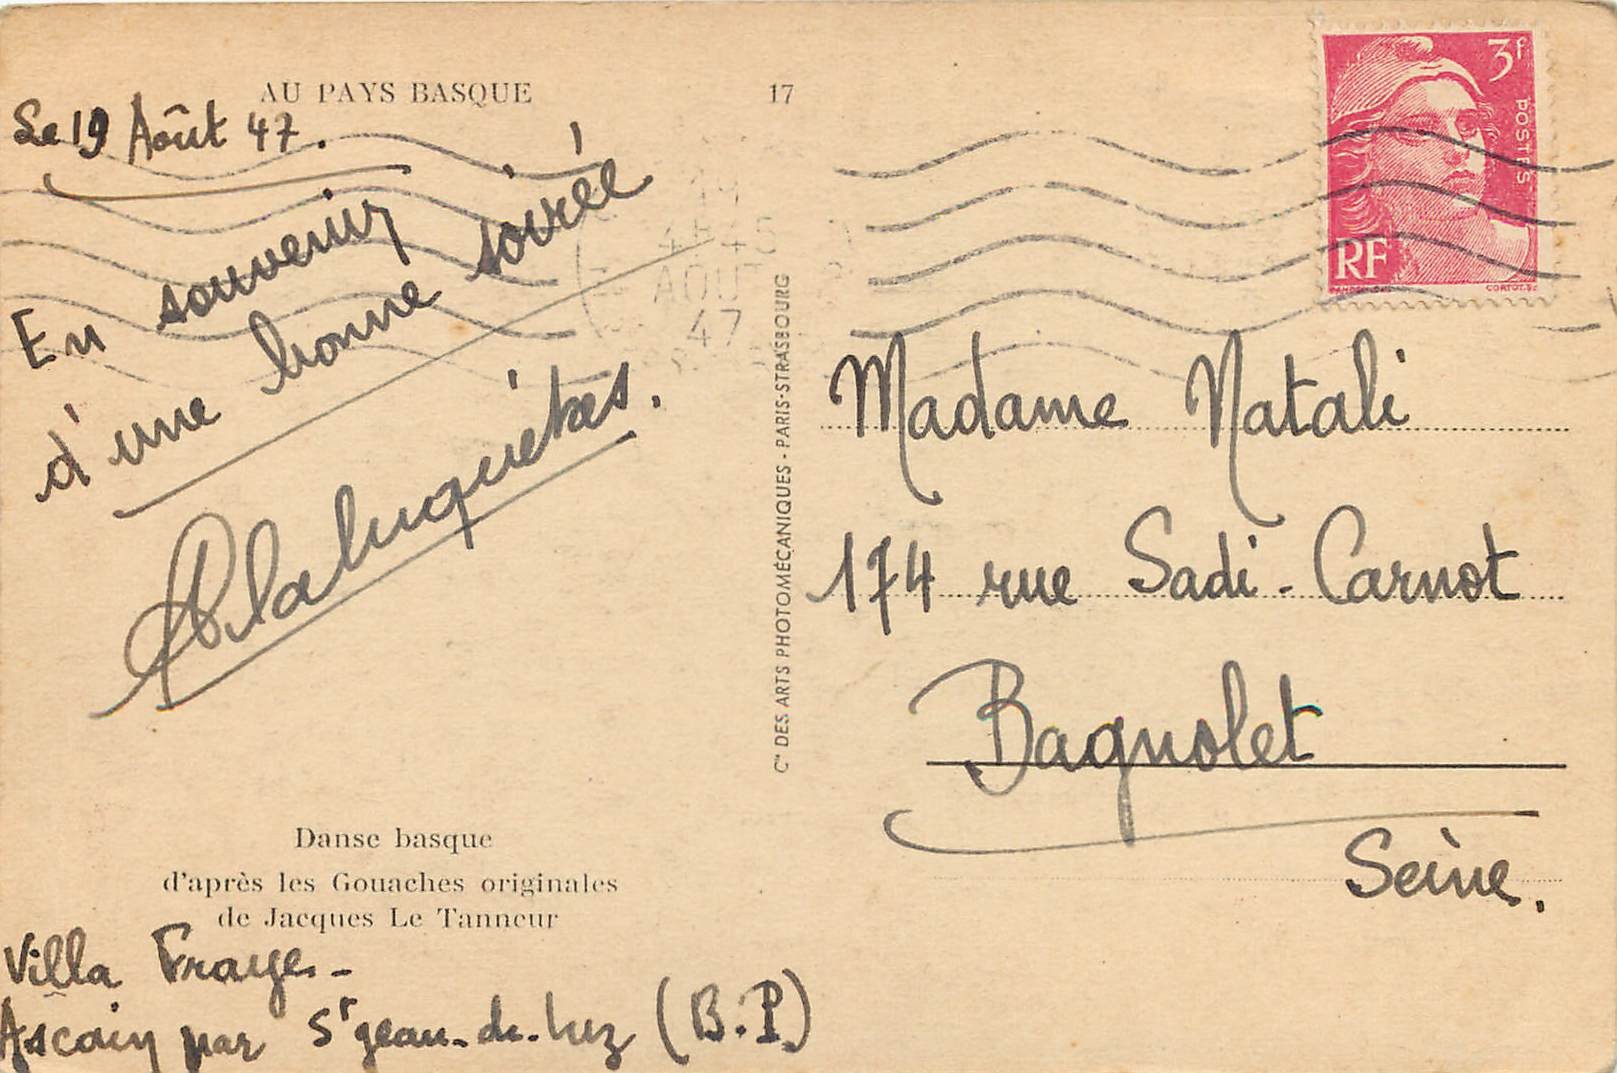 AU PAYS BASQUE
17
Le 19 Août 47.
En souvenir
d'une bonne soirée
Danse basque
d'après les Gouaches originales
de Jacques Le Tanneur
Villa Fraye -
Ascain par St Jean-de-Luz (B.P)
Cie DES ARTS PHOTOMÉCANIQUES - PARIS-STRASBOURG
19
4H45
AOUT
47
3f
POSTES
RF
CORTOT.SC
Madame Natali
174 rue Sadi-Carnot
Bagnolet
Seine.